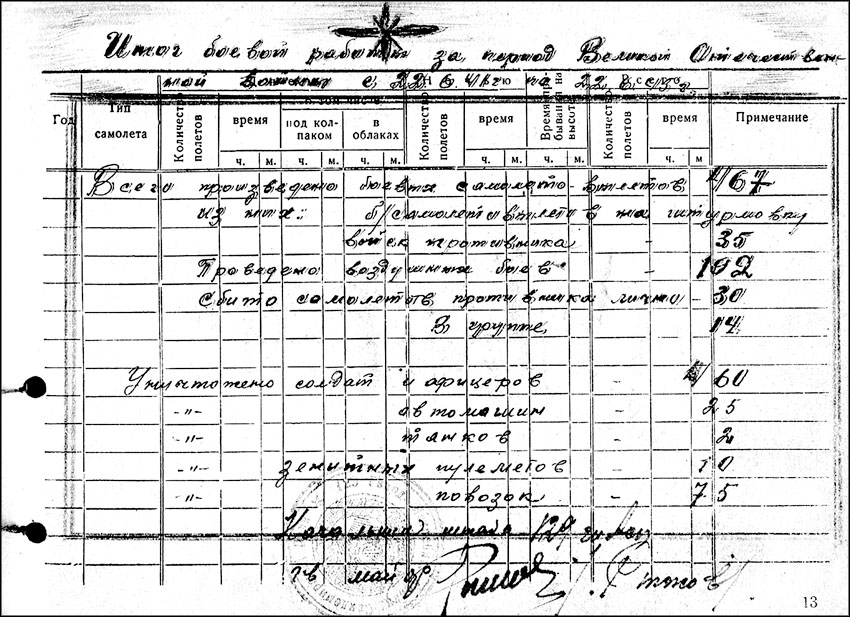 Итог боевой работы за период Великой Отечествен-
ной войны с 22. 6. 41г. по 22. 6.
Год
Тип самолета
Количество полетов
время
в том числе
под кол-паком
в облаках
Количество полетов
время
Время пребывания на высоте
Всего
Количество полетов
время
Примечание
ч. м. ч. м. ч. м. ч. м. ч. м. ч. м.
Всего произведено боевых самолето-вылетов 467
из них: б/самолетовылетов на штурмовку
войск противника - 35
Проведено воздушных боев - 102
Сбито самолетов противника лично - 30
В группе, 14
Уничтожено солдат и офицеров - 60
-"- автомашин - 25
-"- танков - 2
-"- зенитных пулеметов - 10
-"- повозок - 75
Начальник штаба 129
гв майор
13